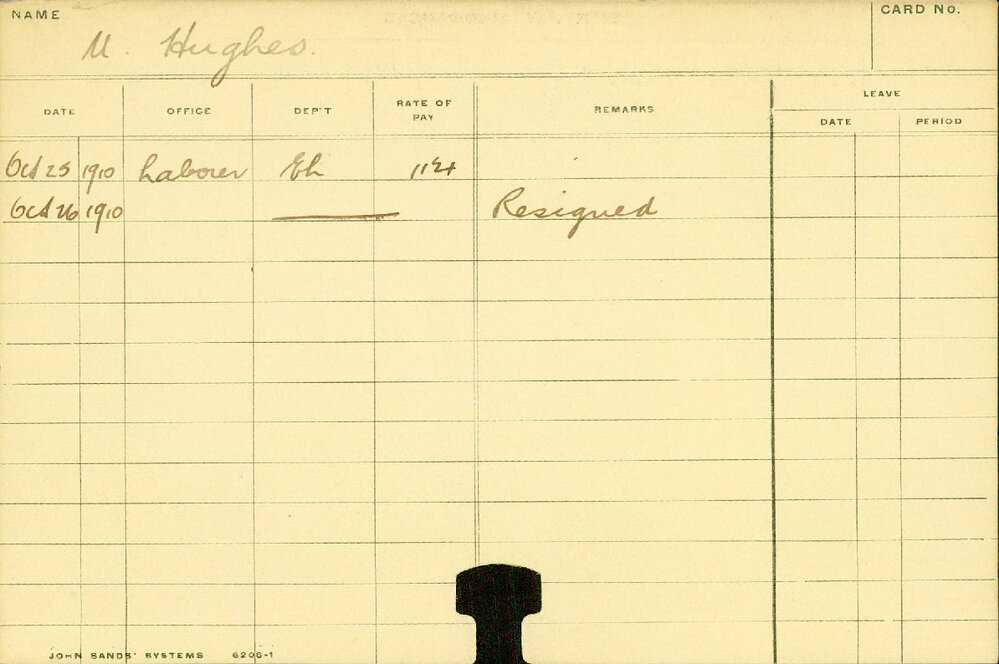 NAME
CARD No.
M. Hughes.
DATE OFFICE DEP'T RATE OF PAY REMARKS LEAVE
DATE PERIOD
Oct 25 1910 Laborer
Oct 26 1910 Resigned
JOHN SANDS' SYSTEMS 6206-1